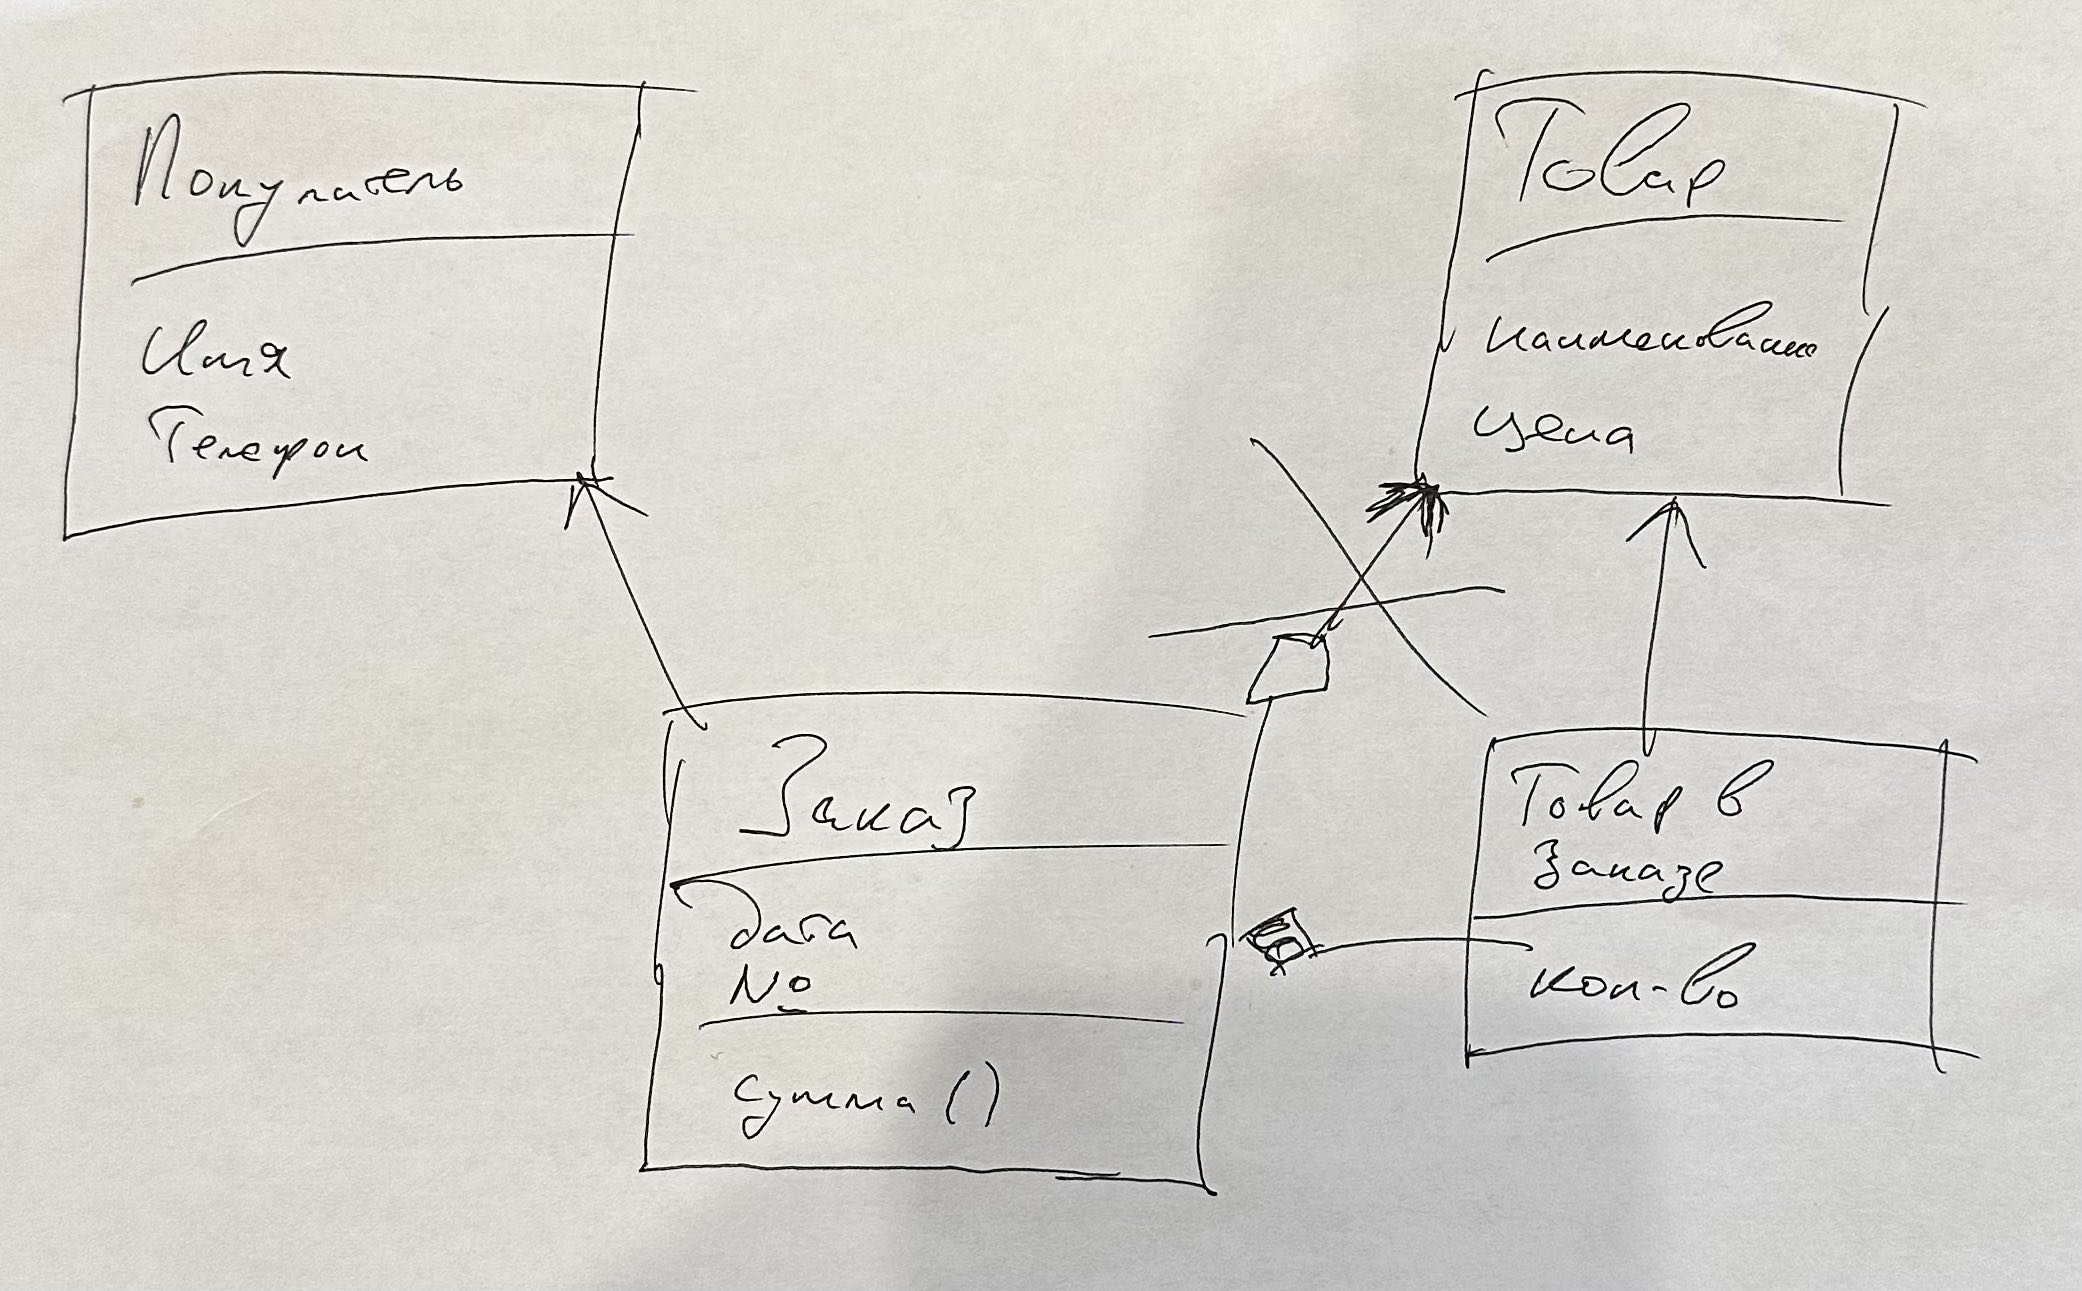 Покупатель
Имя
Телефон
Товар
наименование
цена
Заказ
дата
№
сумма ()
Товар в
заказе
кол-во